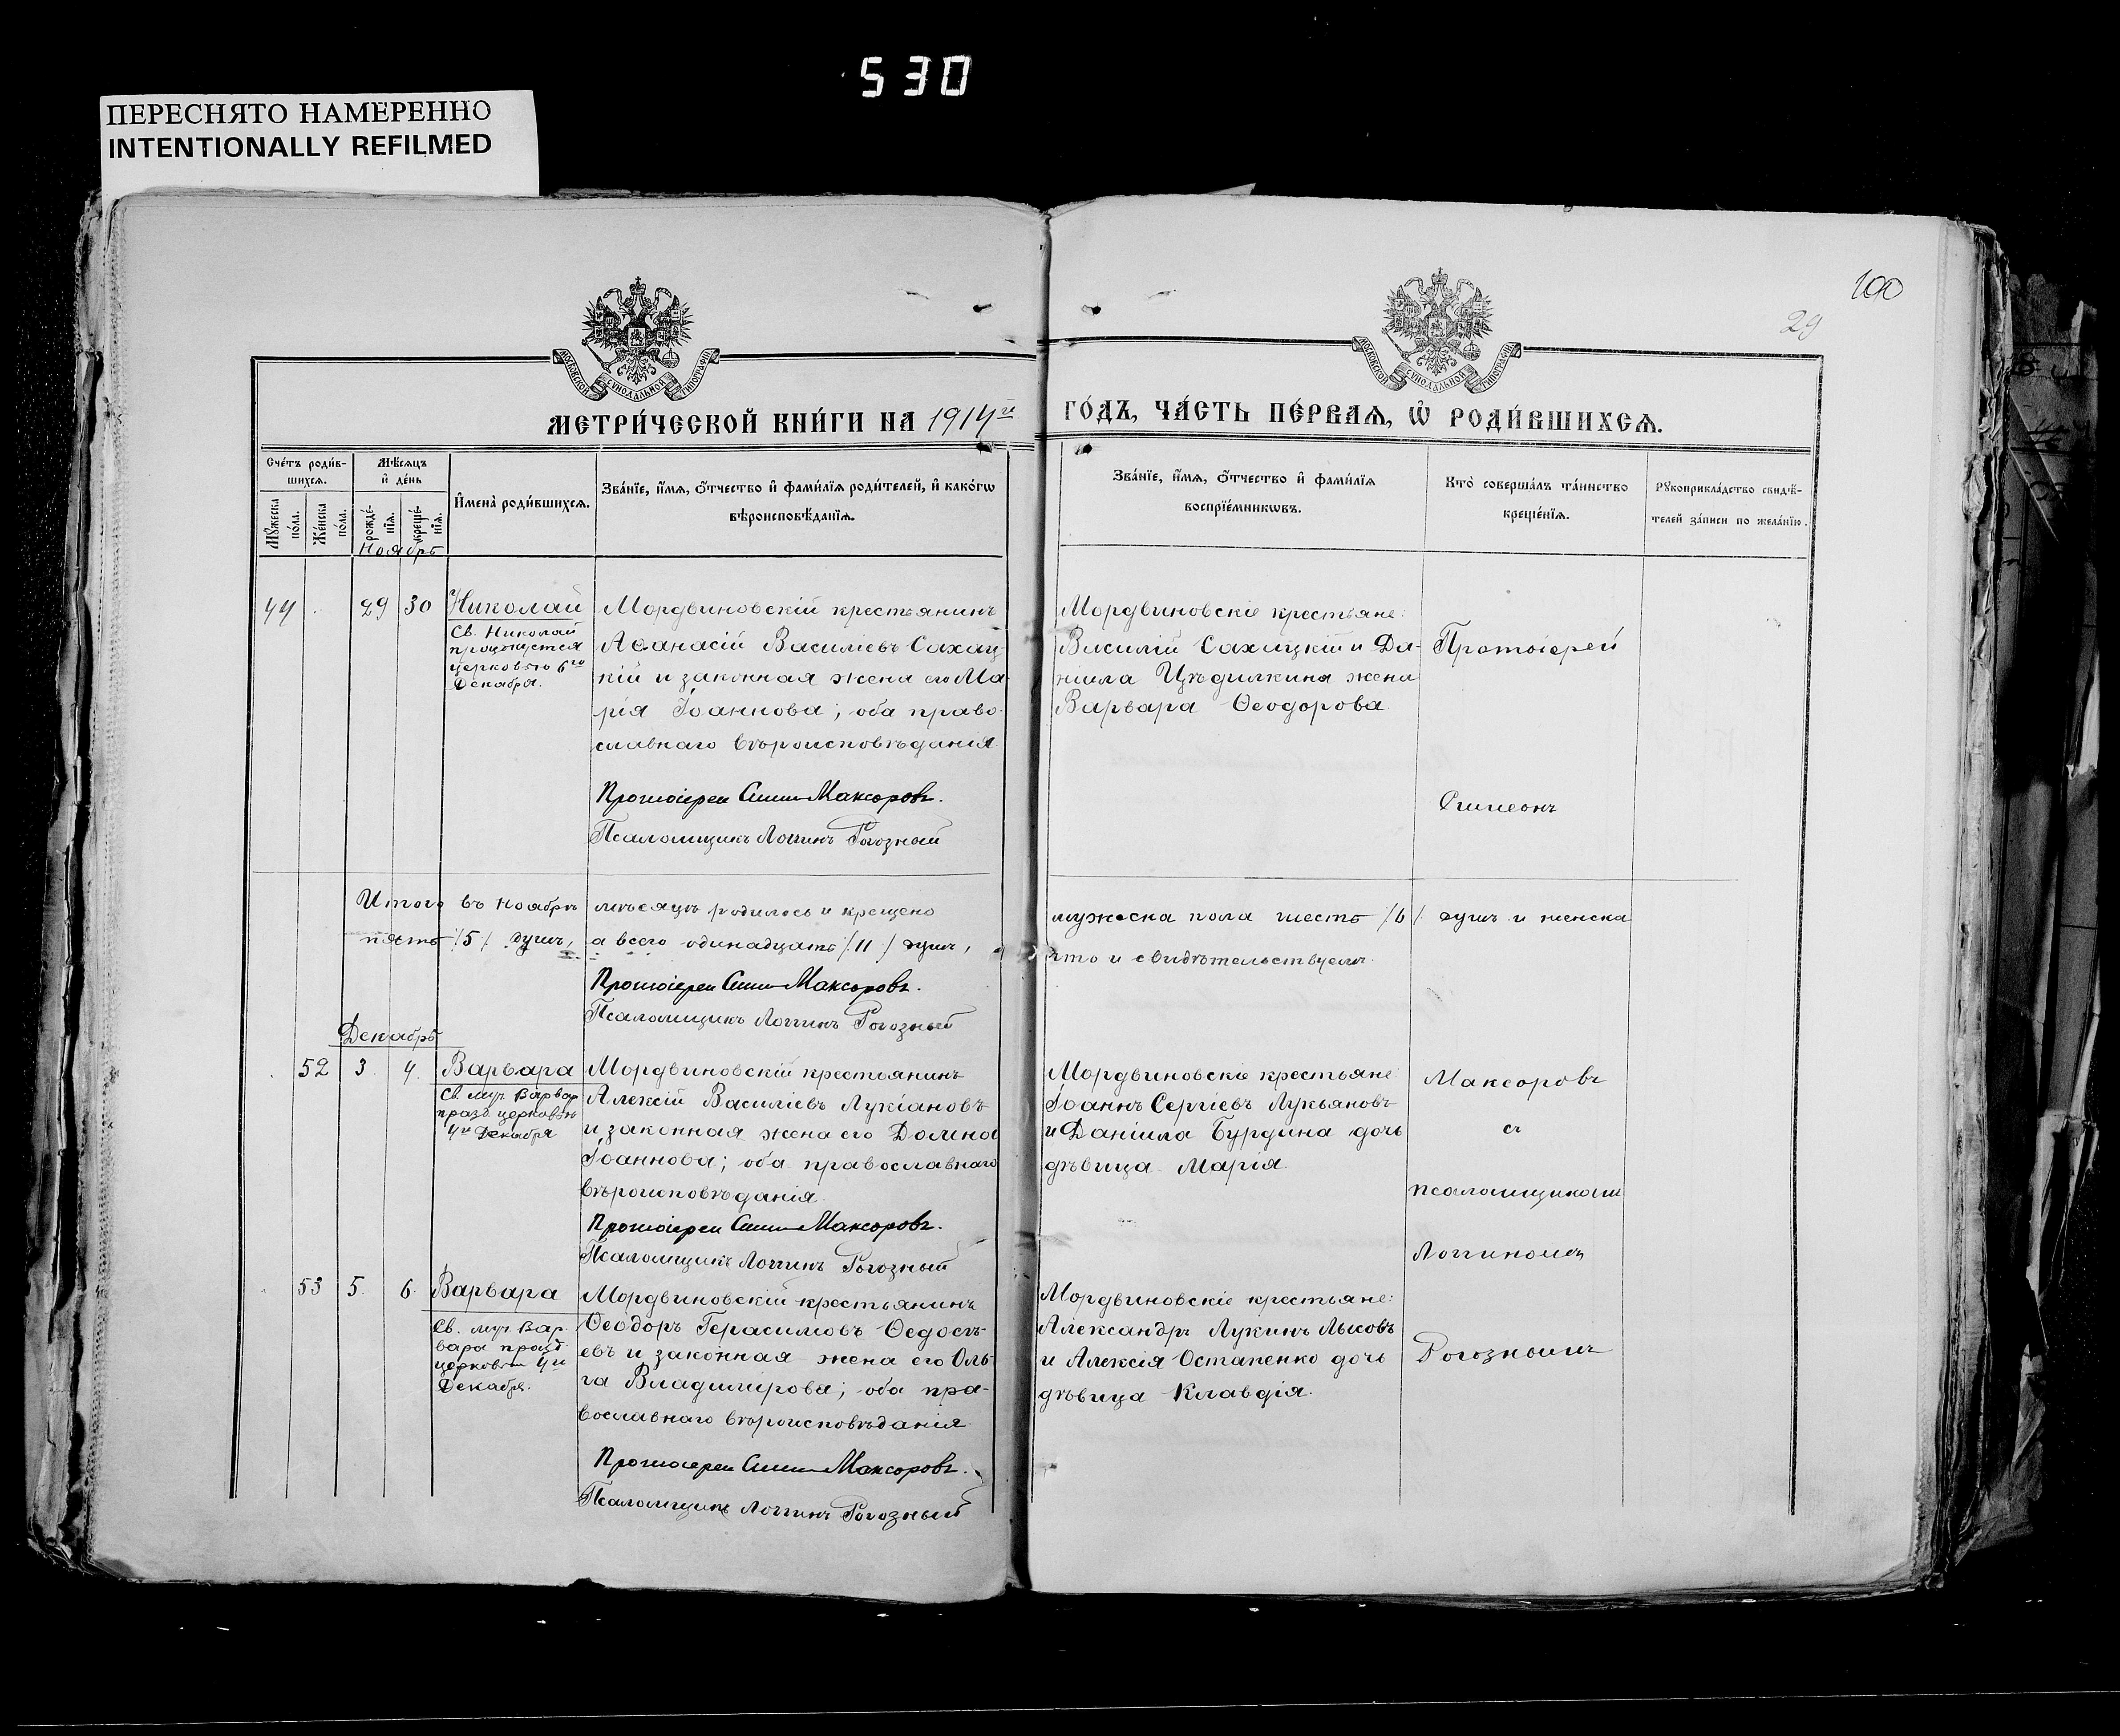 530
ПЕРЕСНЯТО НАМЕРЕННО
INTENTIONALLY REFILMED
100
29
МОСКОВСКОЙ СѴНОДАЛЬНОЙ ТИПОГРАФІИ
МОСКОВСКОЙ СѴНОДАЛЬНОЙ ТИПОГРАФІИ
МЕТРИ́ЧЕСКОЙ КНИ́ГИ НА 1914й
ГО́ДЪ, ЧА́СТЬ ПЕ́РВАѦ, Ѡ҆ РОДИ́ВШИХСѦ.
Сче́тъ роди́в-
шихсѧ.
Мѣ́сѧцъ
и҆ де́нь
Мꙋ́жеска
по́ла.
Же́нска
по́ла.
рожде́-
нїѧ.
креще́-
нїѧ.
И҆мена̀ роди́вшихсѧ.
Зва́нїе, и҆́мѧ, ѻ҆́тчество и҆ фами́лїѧ роди́телей, и҆ како́гѡ
вѣроисповѣ́данїѧ.
Зва́нїе, и҆́мѧ, ѻ҆́тчество и҆ фами́лїѧ
воспрїе́мникѡвъ.
Кто̀ соверша́лъ та́инство
креще́нїѧ.
Рꙋкоприкла́дство свидѣ́-
телей за́писи по жела́нїю.
Ноябрь
44 29 30 Николай
Св. Николай
празднуется
церковью 6го
Декабря.
Мордвиновскій крестьянинъ
Аѳанасій Василіевъ Сахац-
кій и законная жена его Ма-
рія Іоаннова; оба право-
славнаго вѣроисповѣданія.
Протоіерей Симеонъ Максоровъ.
Псаломщикъ Логгинъ Рогозный
Мордвиновскіе крестьяне:
Василій Сахацкій и Да-
ніила Цѣдилкина жена
Варвара Ѳеодорова.
Протоіерей
Симеонъ
Итого въ Ноябрѣ мѣсяцѣ родилось и крещено
мужеска пола шесть /6/ душъ и женска
пять /5/ душъ, а всего одинадцать /11/ душъ,
что и свидѣтельствуемъ.
Протоіерей Симеонъ Максоровъ.
Псаломщикъ Логгинъ Рогозный
Декабрь
52 3. 4. Варвара
Св. муч. Варвар
празд церковью
4го Декабря
Мордвиновскій крестьянинъ
Алексій Василіевъ Лукіановъ
и законная жена его Домна
Іоаннова; оба православнаго
вѣроисповѣданія.
Протоіерей Симеонъ Максоровъ.
Псаломщикъ Логгинъ Рогозный
Мордвиновскіе крестьяне:
Іоаннъ Сергіевъ Лукьяновъ
и Даніила Бурдина дочь
дѣвица Марія.
Максоровъ
съ
псаломщикомъ
Логгиномъ
53 5. 6. Варвара
Св. муч. Вар-
вара празд
церковью 4го
Декабря.
Мордвиновскій крестьянинъ
Ѳеодоръ Герасимовъ Ѳедосѣ-
евъ и законная жена его Оль-
га Владимірова; оба пра-
вославнаго вѣроисповѣданія
Протоіерей Симеонъ Максоровъ.
Псаломщикъ Логгинъ Рогозный
Мордвиновскіе крестьяне:
Александръ Лукинъ Лысовъ
и Алексія Остапенко дочь
дѣвица Клавдія.
Рогознымъ